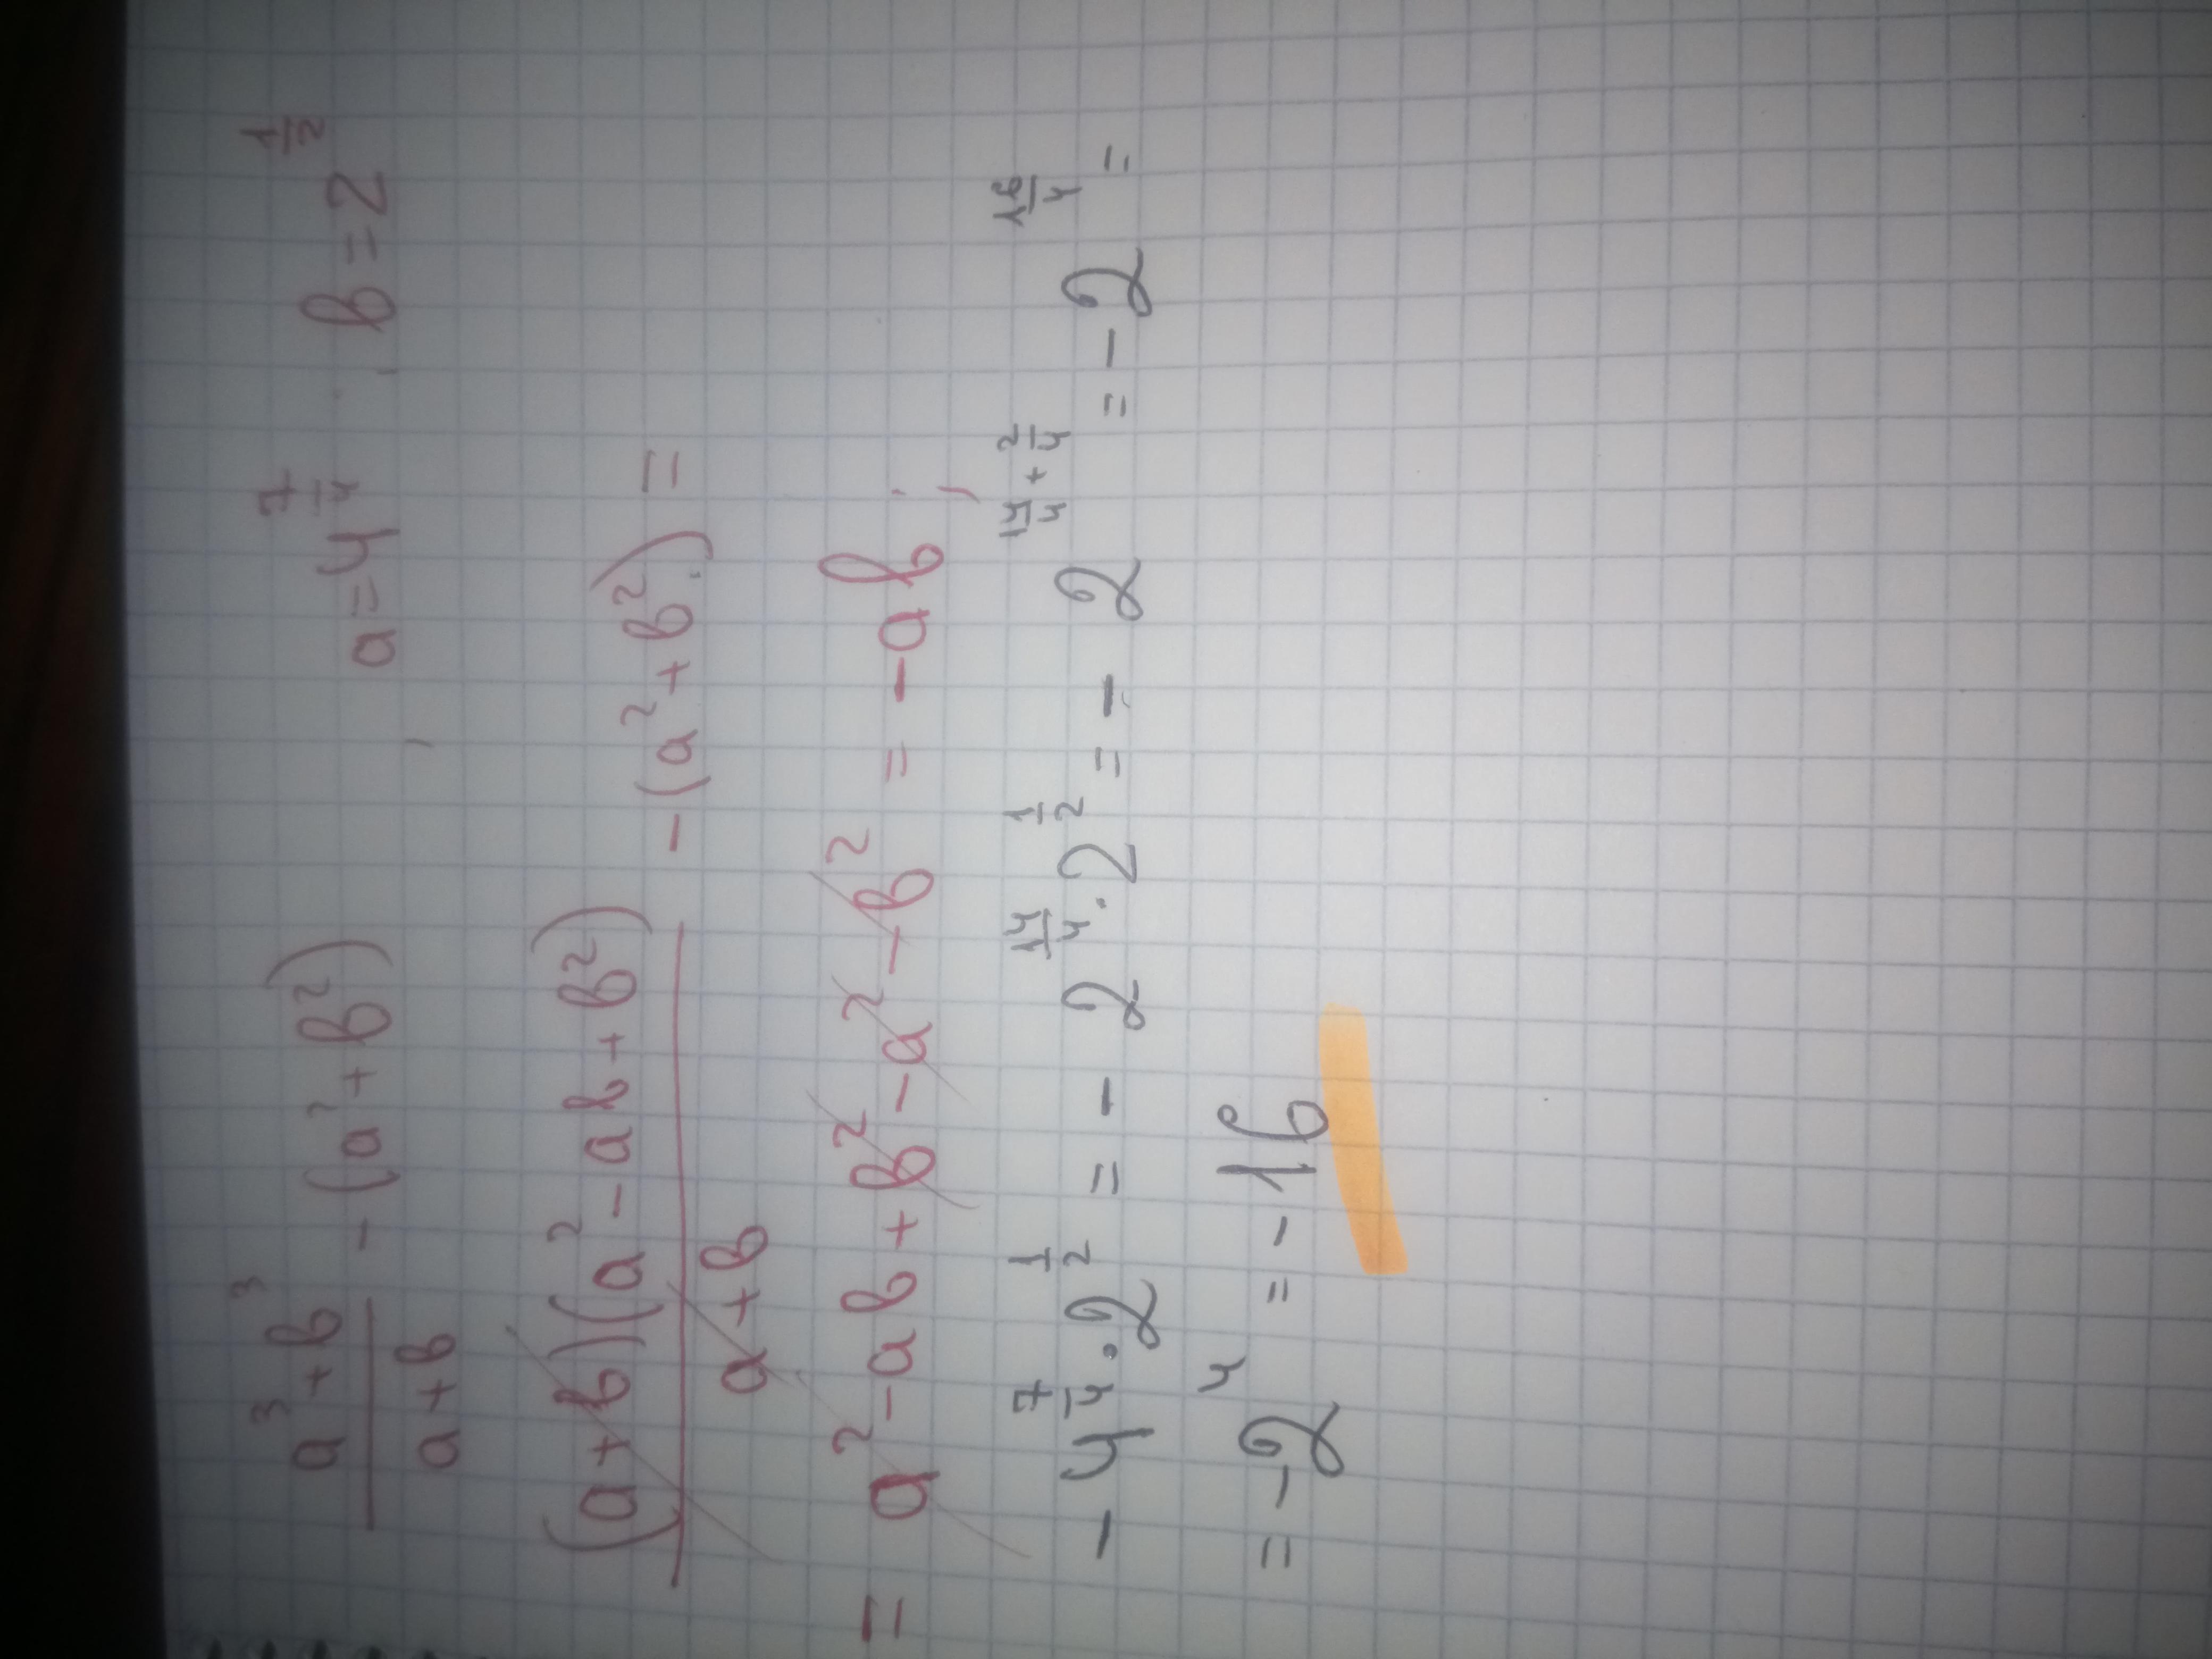 a³+b³/a+b - (a²+b²) , a=4^7/4 , b=2^1/2
(a+b)(a²-ab+b²)/a+b - (a²+b²) =
= a²-ab+b²-a²-b² = -ab ;
-4^7/4 · 2^1/2 = - 2^14/4 · 2^1/2 = - 2^14/4+2/4 = -2^16/4 =
= -2^4 = -16